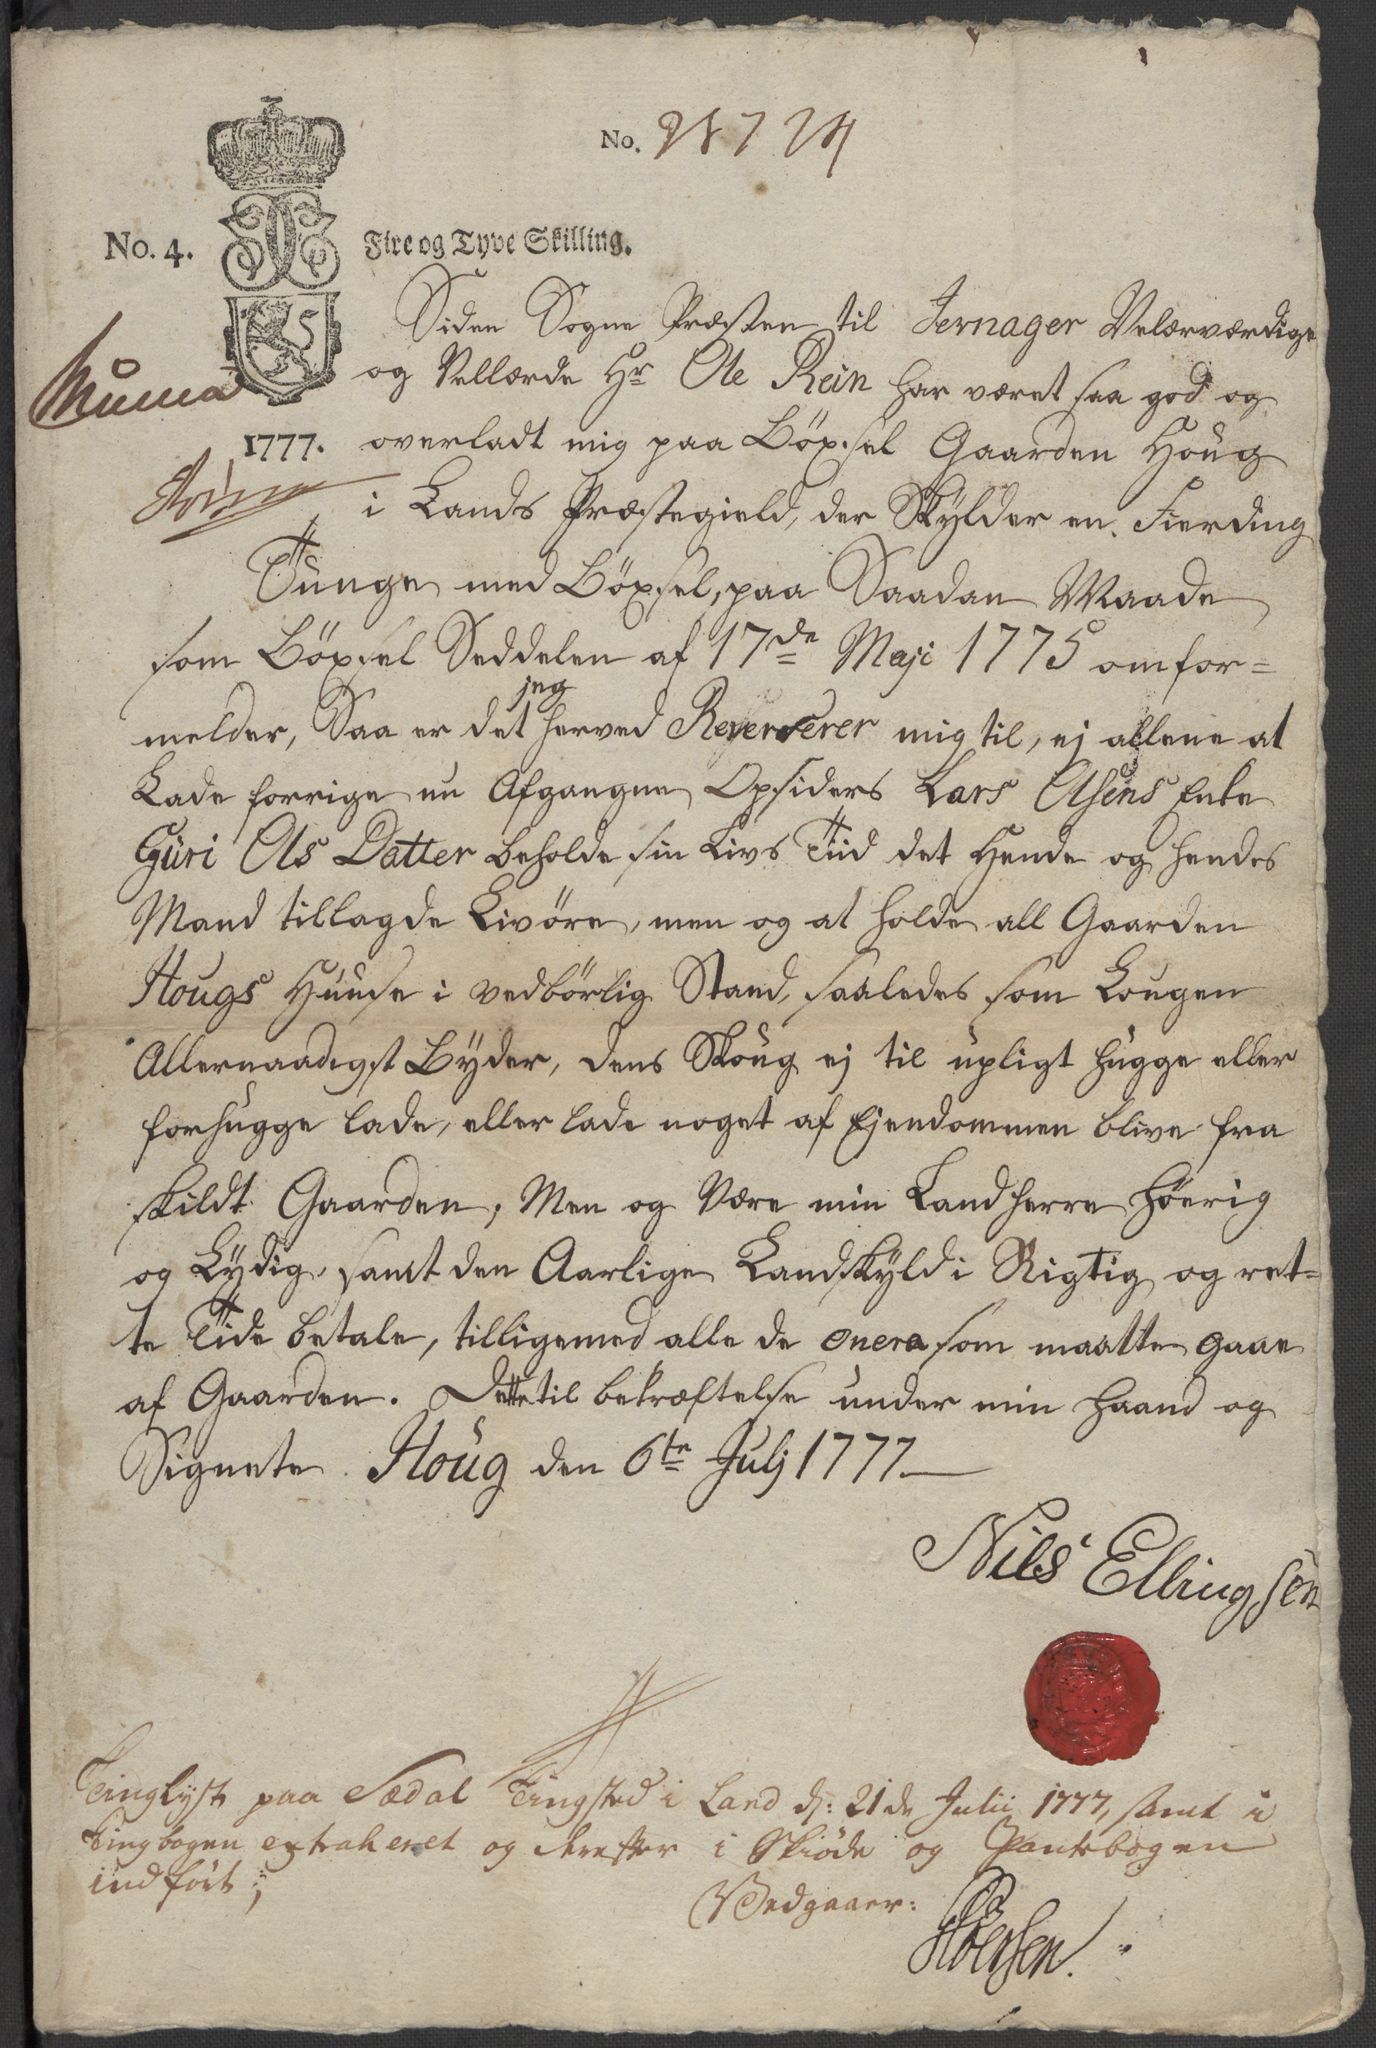 No. 28724
No. 4. Fire og Tyve Skilling.
Siden Sogne Præsten til Jernager Velærværdige
og Vellærde Hr Ole Rein har været saa god og
1777. overladt mig paa Böxsel Gaarden Houg
i Lands Præstegield, der Skylder en Fierding
Tunge med Böxsel, paa Saadan Maade
som Böxsel Seddelen af 17de Maji 1775 omfor=
melder, Saa er det jeg herved Reverserer mig til, ej allene at
Lade forrige nu Afgangne Opsiders Lars Olsens Enke
Guri Ols Datter beholde sin Livs Tiid det Hende og hendes
Mand tillagde Livöre, men og at holde all Gaarden
Hougs Huuse i vedbörlig Stand, saaledes som Lougen
Allernaadigst Byder, dens Skoug ej til upligt hugge eller
forhugge lade, eller lade noget af Ejendommen blive fra
skildt Gaarden, Men og Være min Landherre höerig
og Lydig, samt den Aarlige Landskyld i Rigtig og ret=
te Tide betale, tilligemed alle de onera som maatte gaae
af Gaarden. Dette til bekræftelse under min Haand og
Signete Houg den 6te Julj 1777.
Nils Ellingsen
Tinglyst paa Sædal Tingsted i Land d: 21de Julii 1777, samt i
Tingbogen extraheret og derefter i Skiöde og Pantebogen
indfört;
Vedgaaer: